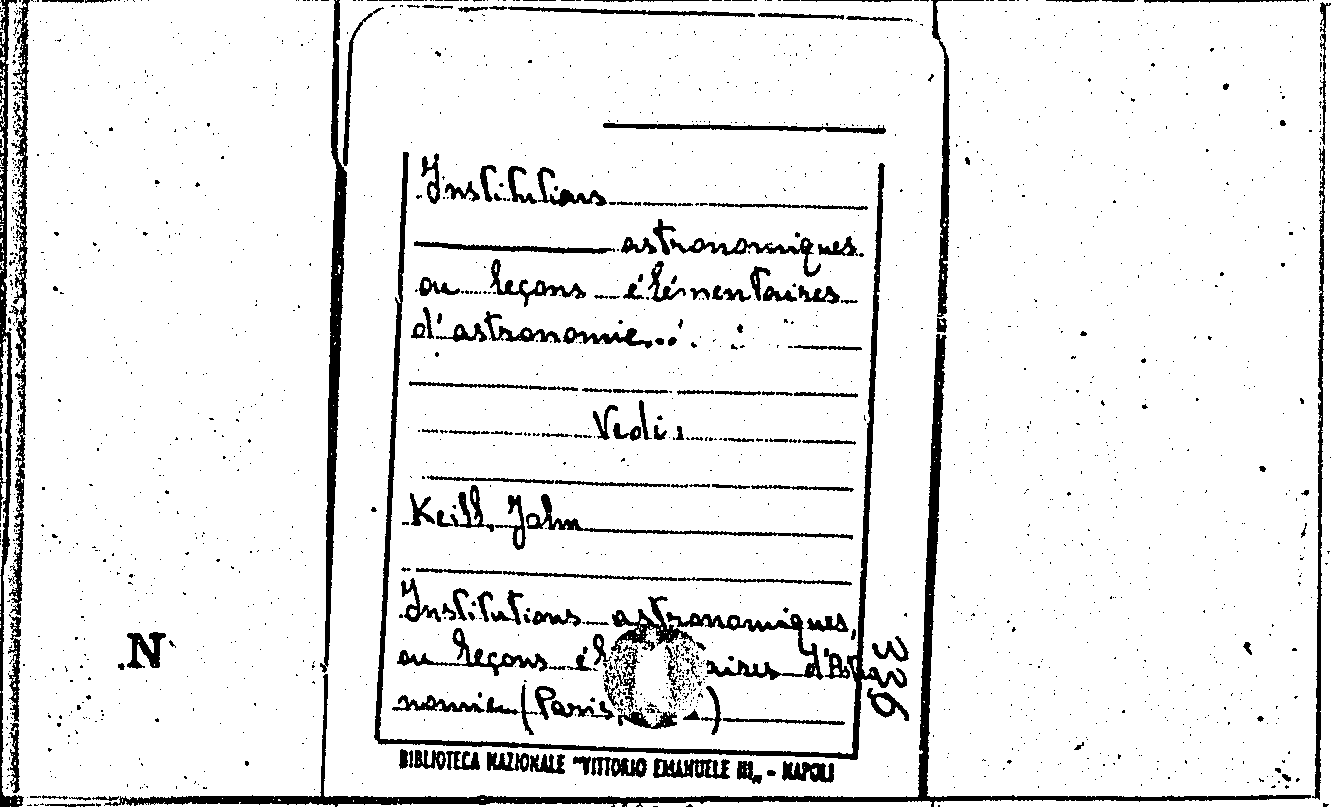 Institutions
astronomiques.
ou leçons élémentaires
d'astronomie...
Vedi:
Keill, John
Institutions astronomiques,
ou leçons él aires d'Astro
nomie (Paris, )
336
N
BIBLIOTECA NAZIONALE "VITTORIO EMANUELE III" - NAPOLI